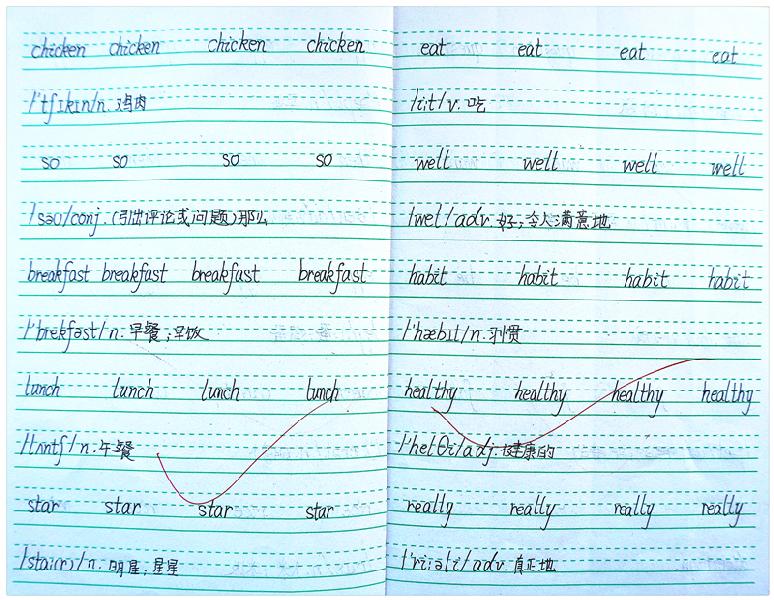 chicken chicken chicken chicken
/'tʃɪkɪn/n. 鸡肉
so so so so
/səʊ/conj. (引出评论或问题)那么
breakfast breakfast breakfast breakfast
/'brekfəst/n. 早餐;早饭
lunch lunch lunch lunch
/lʌntʃ/n. 午餐
star star star star
/stɑː(r)/n. 明星;星星
eat eat eat eat
/iːt/v. 吃
well well well well
/wel/adv. 好;令人满意地
habit habit habit habit
/'hæbɪt/n. 习惯
healthy healthy healthy healthy
/'helθi/adj. 健康的
really really really really
/'riːəli/adv. 真正地